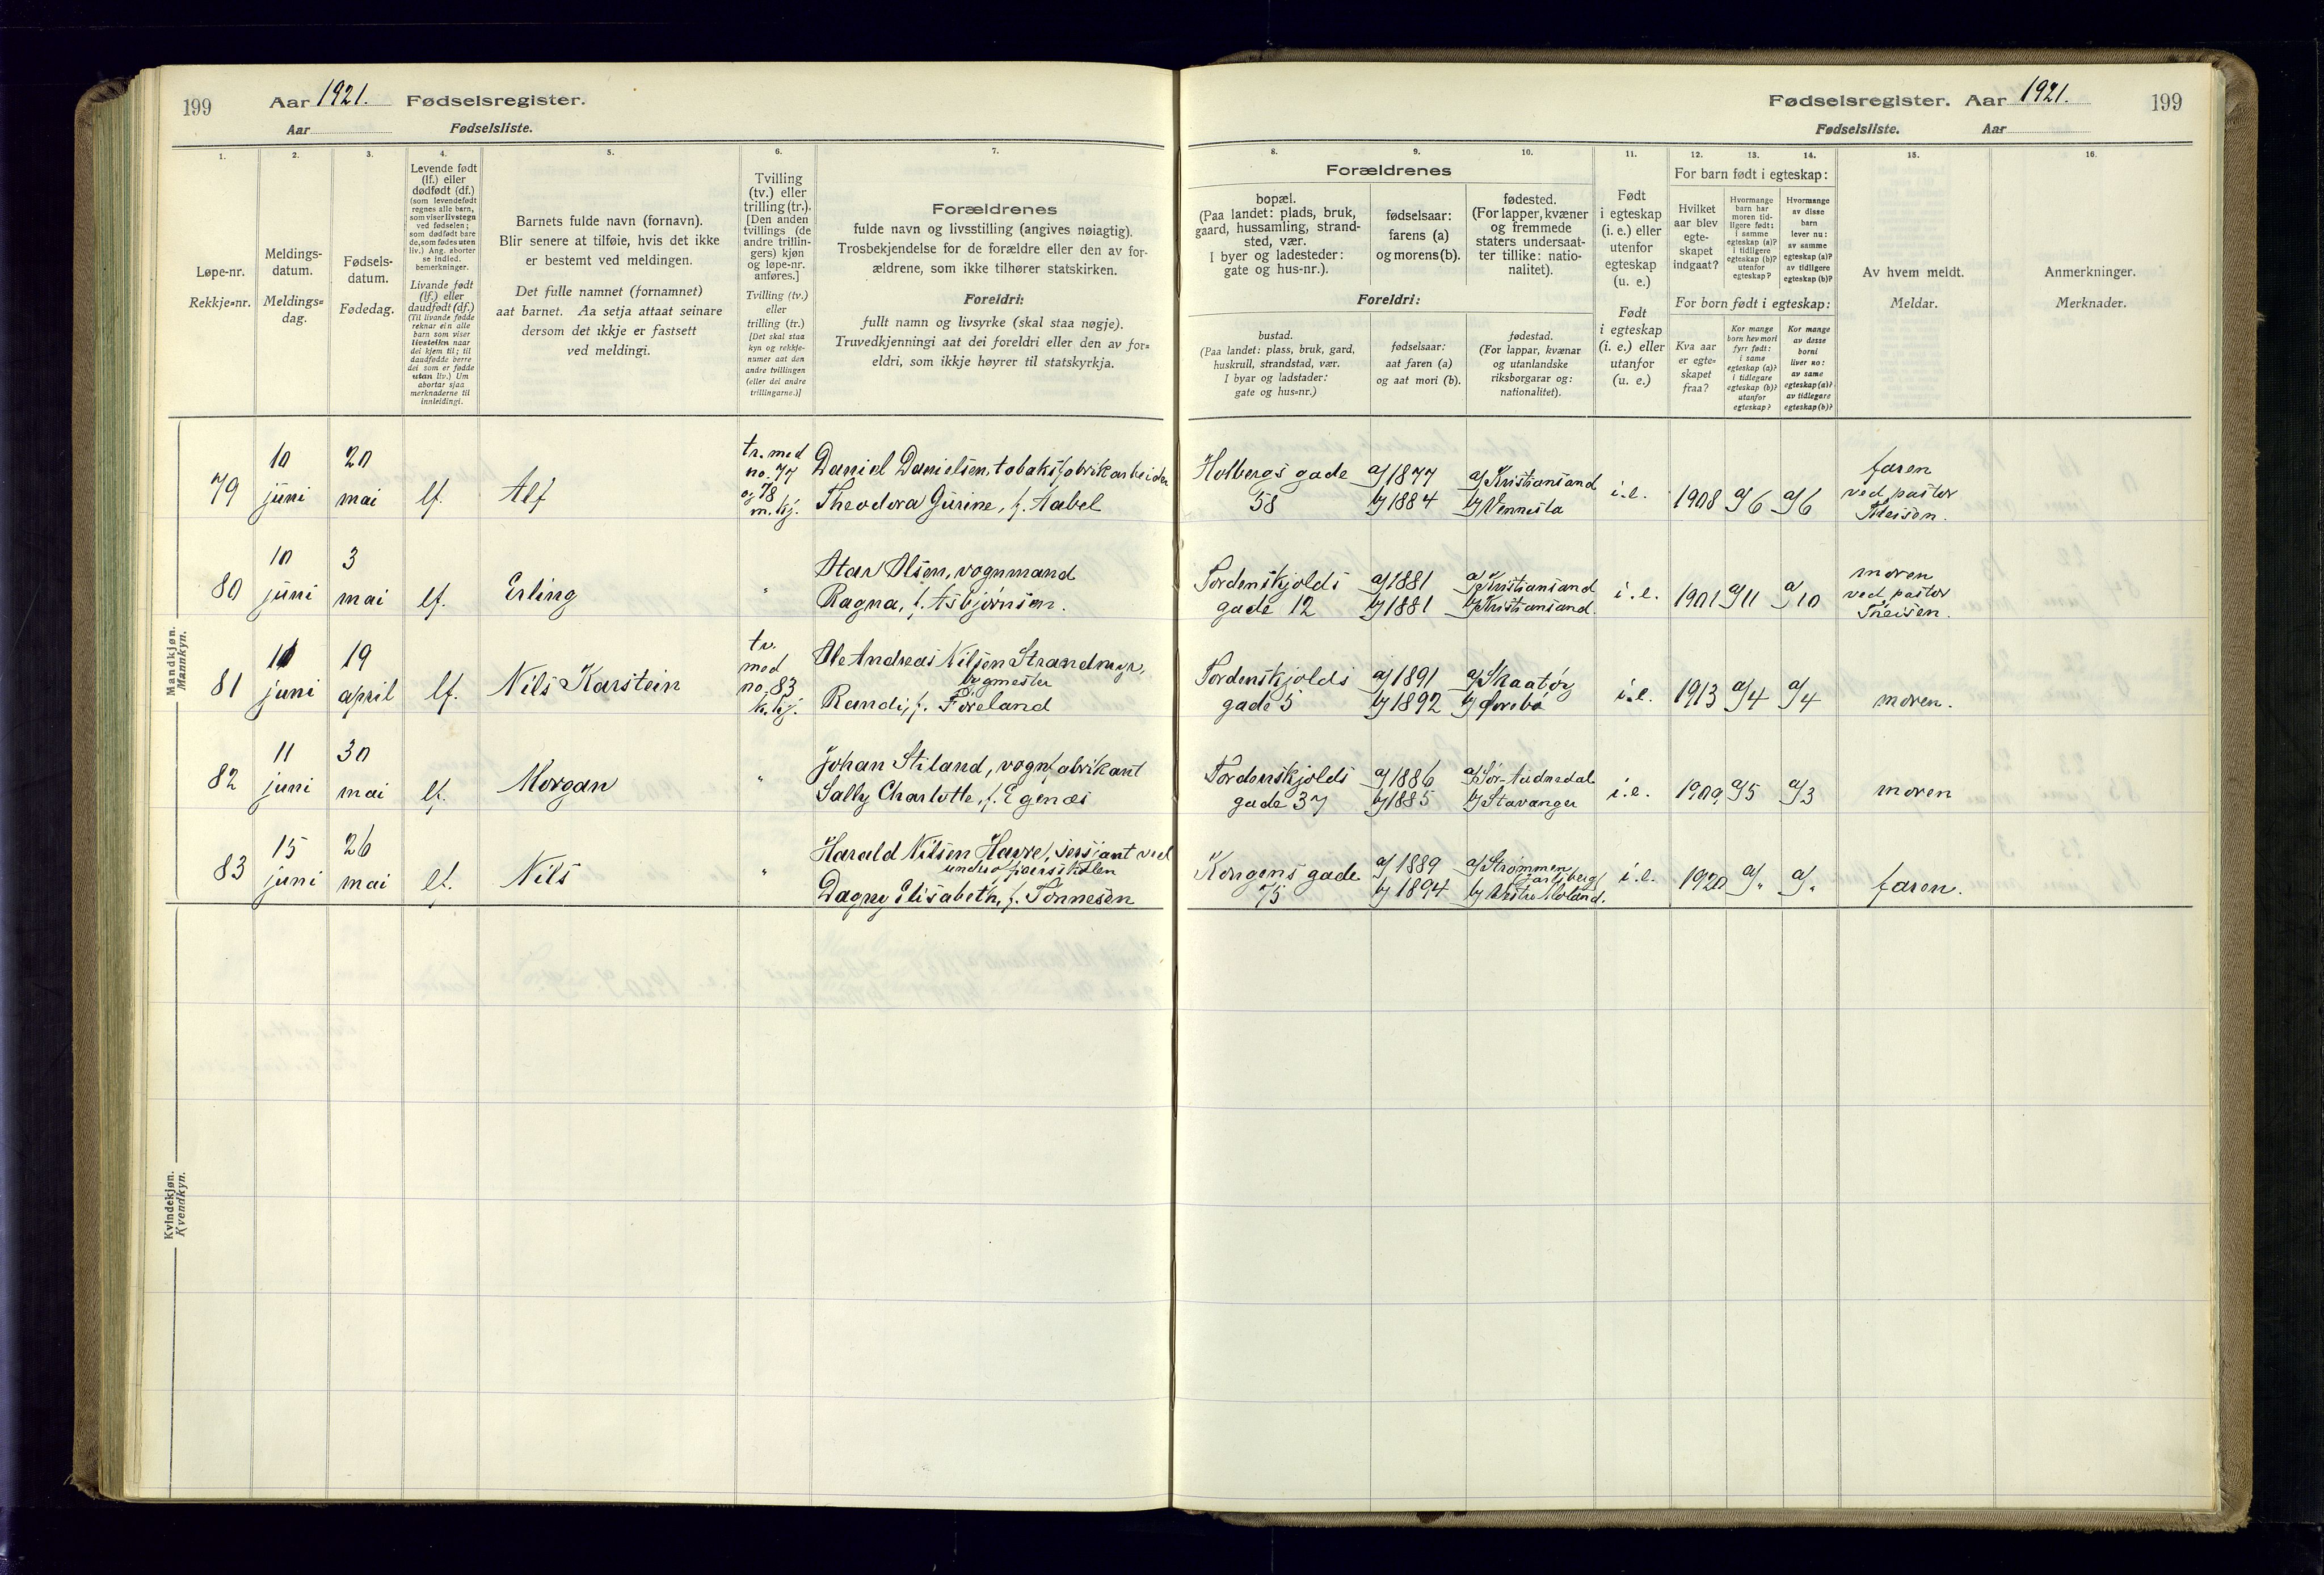 199 Aar 1921. Fødselsregister.
Aar Fødselsliste.
Fødselsregister. Aar 1921. 199
Fødselsliste. Aar
1.
2.
3.
4.
5.
6.
7.
Løpe-nr.
Rekkje=nr.
Meldings-
datum.
Meldings=
dag.
Fødsels-
datum.
Fødedag.
Levende født
(lf.) eller
dødfødt (df.)
(som levendefødt
regnes alle barn,
som viser livstegn
ved fødselen;
som dødfødt bare
de, som fødes uten
liv.) Ang. aborter
se indled.
bemerkninger.
Livande født
(lf.) eller
daudfødt (df.)
(Til livande fødde
reknar ein alle
barn som viser
livsteikn naar
dei kjem til; til
daudfødde berre
dei som er fødde
utan liv.) Um
abortar sjaa
merknaderne til
innleidingi.
Barnets fulde navn (fornavn).
Blir senere at tilføie, hvis det ikke
er bestemt ved meldingen.
Det fulle namnet (fornamnet)
aat barnet. Aa setja attaat seinare
dersom det ikkje er fastsett
ved meldingi.
Tvilling
(tv.) eller
trilling (tr.).
[Den anden
tvillings (de
andre trillin-
gers) kjøn
og løpe-nr.
anføres.]
Tvilling (tv.)
eller
trilling (tr.)
[Det skal staa
kyn og rekkje-
numer aat den
andre tvillingen
(eller dei andre
trillingarne.)]
Forældrenes
fulde navn og livsstilling (angives nøiagtig).
Trosbekjendelse for de forældre eller den av for-
ældrene, som ikke tilhører statskirken.
Foreldri:
fullt namn og livsyrke (skal staa nøgje).
Truvedkjenningi aat dei foreldri eller den av for=
eldri, som ikkje høyrer til statskyrkja.
8.
9.
10.
11.
12.
13.
14.
15.
16.
Forældrenes
bopæl.
(Paa landet: plads, bruk,
gaard, hussamling, strand-
sted, vær.
I byer og ladesteder:
gate og hus-nr.).
fødselsaar:
farens (a)
og morens (b).
fødested.
(For lapper, kvæner
og fremmede
staters undersaat-
ter tillike: natio-
nalitet).
Foreldri:
bustad.
(Paa landet: plass, bruk, gard,
huskrull, strandstad, vær.
I byar og ladstader:
gate og hus=nr.)
fødselsaar:
aat faren (a)
og aat mori (b).
fødestad.
(For lappar, kvænar
og utanlandske
riksborgarar og:
nationalitet).
Født
i egteskap
(i. e.) eller
utenfor
egteskap
(u. e.)
Født
i egteskap
(i. e.) eller
utanfor
(u. e.)
For barn født i egteskap:
Hvilket
aar blev
egte-
skapet
indgaat?
Hvormange
barn har
moren tid-
ligere født:
i samme
egteskap (a)?
i tidligere
egteskap (b)?
utenfor
egteskap?
Hvormange
av disse
barn
lever nu:
av samme
egteskap (a)?
av tidligere
egteskap (b)?
For born født i egteskap:
Kva aar
er egte=
skapet
fraa?
Kor mange
born hev mori
fyrr født:
i same
egteskap (a)?
i tidlegare
egteskap (b)?
utanfor
egteskap?
Kor mange
av desse
borni
liver no:
av same
egteskap (a)?
av tidlegare
egteskap (b)?
Av hvem meldt.
Meldar.
Anmerkninger.
Merknader.
Mandkjøn.
Mannkyn.
79 10 juni 20 mai lf. Alf tr. med no. 77 og 78 m. kj. Daniel Danielsen, tobaksfabrikarbeider
Theodora Gurine, f. Aabel
Holbergs gade 58 a/ 1877 b/ 1884 a/ Kristiansand b/ Vennesla i.e. 1908 a/ 6 a/ 6 faren ved pastor Theisen.
80 10 juni 3 mai lf. Erling " Olaf Olsen, vognmand
Ragna, f. Asbjørnsen.
Tordenskjolds gade 12 a/ 1881 b/ 1881 a/ Kristiansand b/ Kristiansand. i.e. 1901 a/ 11 a/ 10 moren ved pastor Theisen.
81 juni 19 april lf. Nils Karstein tv. med no. 83 k. kj. Ole Andreas Nilsen Strandmyr,
bygmester
Randi, f. Føreland
Tordenskjolds gade 5 a/ 1891 b/ 1892 a/ Skaatøy b/ Øvrebø i.e. 1913 a/ 4 a/ 4 moren.
82 11 juni 30 mai lf. Morgan " Johan Stiland, vognfabrikant
Sally Charlotte, f. Egenæs
Tordenskjolds gade 37 a/ 1886 b/ 1885 a/ Sør-Audnedal b/ Stavanger i.e. 1909. a/ 5 a/ 3 moren
83 15 juni 26 mai lf. Nils " Harald Nilsen Havre, sersjant ved
Dagny Elisabeth, f. Tønnesen
Kongens gade 75 a/ 1889 b/ 1894 a/ Strømmen Jarlsberg b/ Vestre Moland. i.e. 1920 a/ " a/ " faren.
Kvindekjøn.
Kvendkyn.